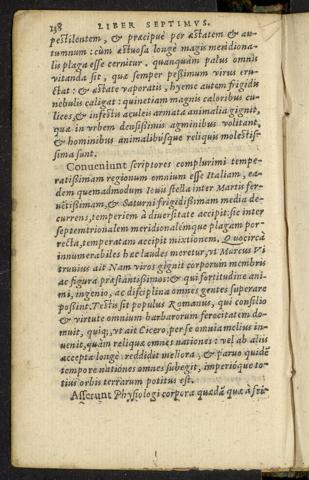 138 LIBER SEPTIMVS.
pestilentem, & præcipuè per æstatem & au-
tumnum: cùm æstuosa longè magis meridiona-
lis plaga esse cernitur. quanquàm palus omnis
vitanda sit, quæ semper pessimum virus eru-
ctat: & æstate vaporatis, hyeme autem frigidis
nebulis caligat: quinetiam magnis caloribus cu-
lices, & infestis aculeis armata animalia gignit,
quæ in vrbem densissimis agminibus volitant,
& hominibus animalibusque reliquis molestis-
sima sunt.
Conueniunt scriptores complurimi tempe-
ratissimam regionum omnium esse Italiam, ea-
dem quemadmodum Iouis stella inter Martis fer-
uētissimam, & Saturni frigidissimam media de-
currens, temperiem à diuersitate accipit: sic inter
septemtrionalem meridionalémque plagam por-
recta, temperatam accipit mixtionem. Quocircà
innumerabiles hæc laudes meretur, vt Marcus Vi
truuius ait Nam viros gignit corporum membris
ac figura præstantissimos: & qui fortitudine ani-
mi, ingenio, ac disciplina omnes gentes superare
possint. Testis sit populus Romanus, qui consilio
& virtute omnium barbarorum ferocitatem do-
muit, quíq;, vt ait Cicero, per se omnia melius in-
uenit, quàm reliquæ omnes nationes: vel ab aliis
accepta longè reddidit meliora, & paruo quidē
tempore nationes omnes subegit, imperióque to-
tius orbis terrarum potitus est.
Asserunt Physiologi corpora quædā quæ à fri-